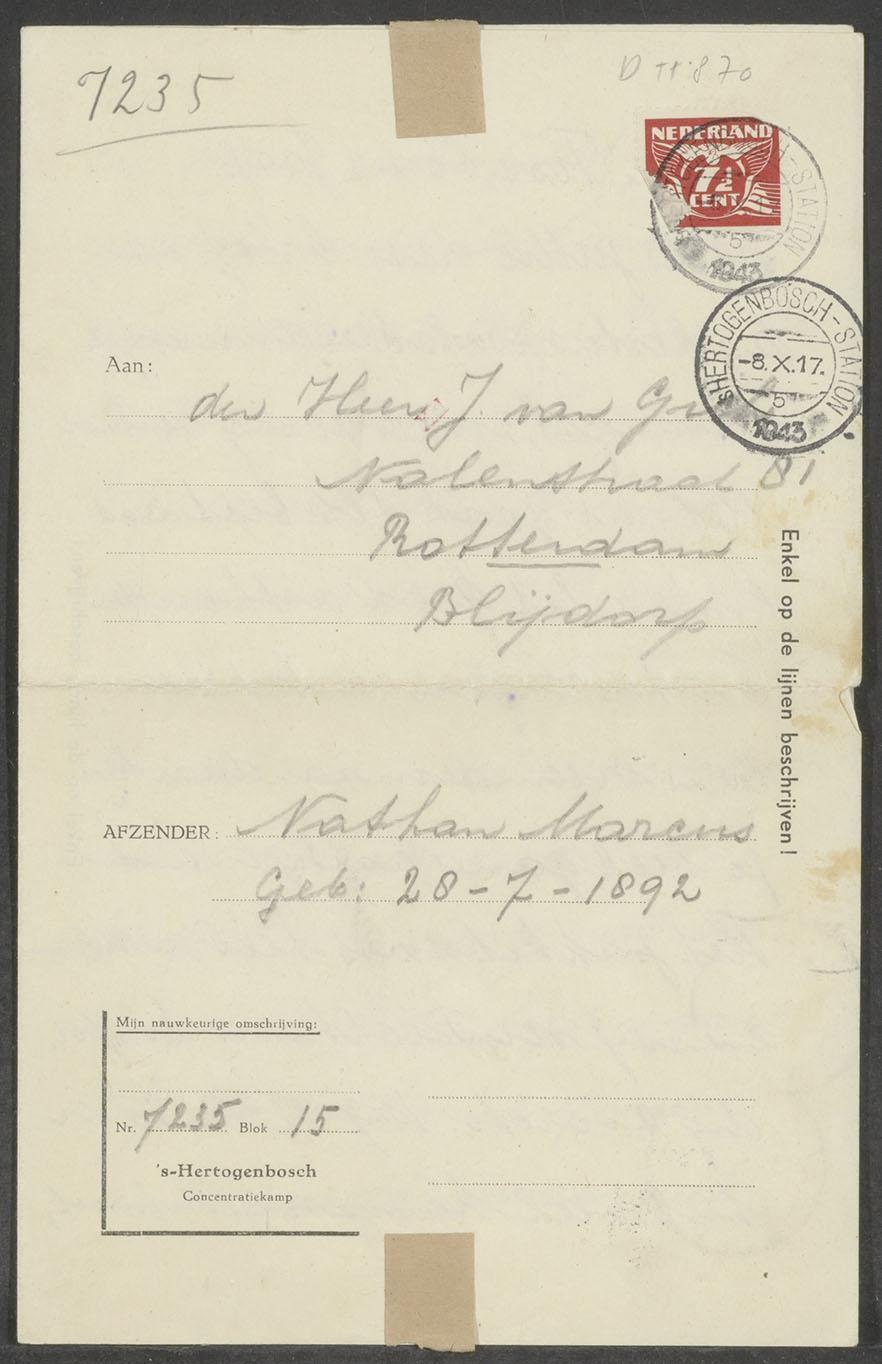 7235
D 11870
NEDERLAND
7½
CENT
STATION
5
1943
'SHERTOGENBOSCH-STATION
-8.X.17.
5
1943
Aan:
den Heer J. van
81
Rotterdam
Blijdorp
Enkel op de lijnen beschrijven!
AFZENDER: Nathan Marcus
Geb: 28-7-1892
Mijn nauwkeurige omschrijving:
Nr. 7235 Blok 15
's-Hertogenbosch
Concentratiekamp